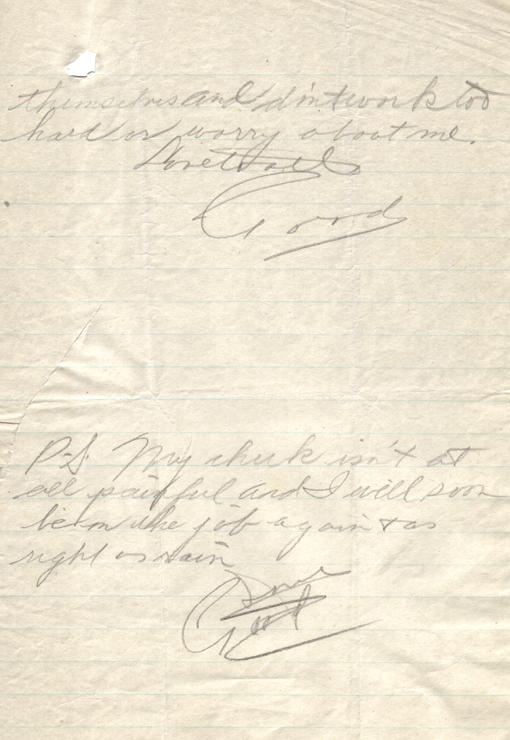 themselves and don't work too
hard or worry about me.
Love to all
Good
P.S. My cheek isn't at
all painful and I will soon
be on the job again & as
right as rain
Love
Good